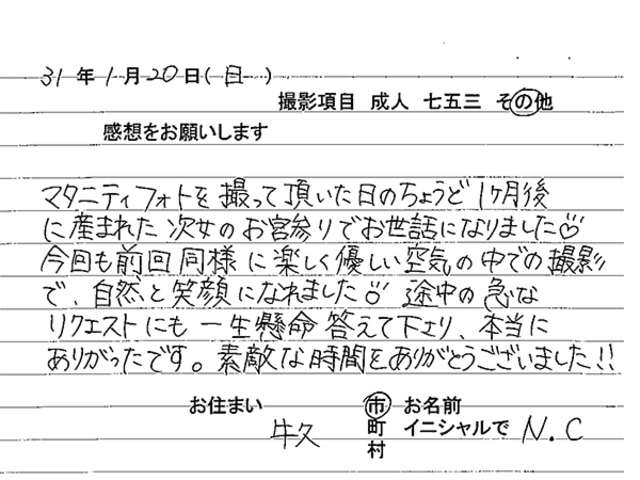 31年1月20日(日)
撮影項目 成人 七五三 その他
感想をお願いします
マタニティフォトを撮って頂いた日のちょうど1ヶ月後
に産まれた次女のお宮参りでお世話になりました
今回も前回同様に楽しく優しい空気の中での撮影
で、自然と笑顔になれました 途中の急な
リクエストにも一生懸命答えて下さり、本当に
ありがったです。素敵な時間をありがとうございました!!
お住まい 牛久 市 お名前
町 イニシャルで N.C
村